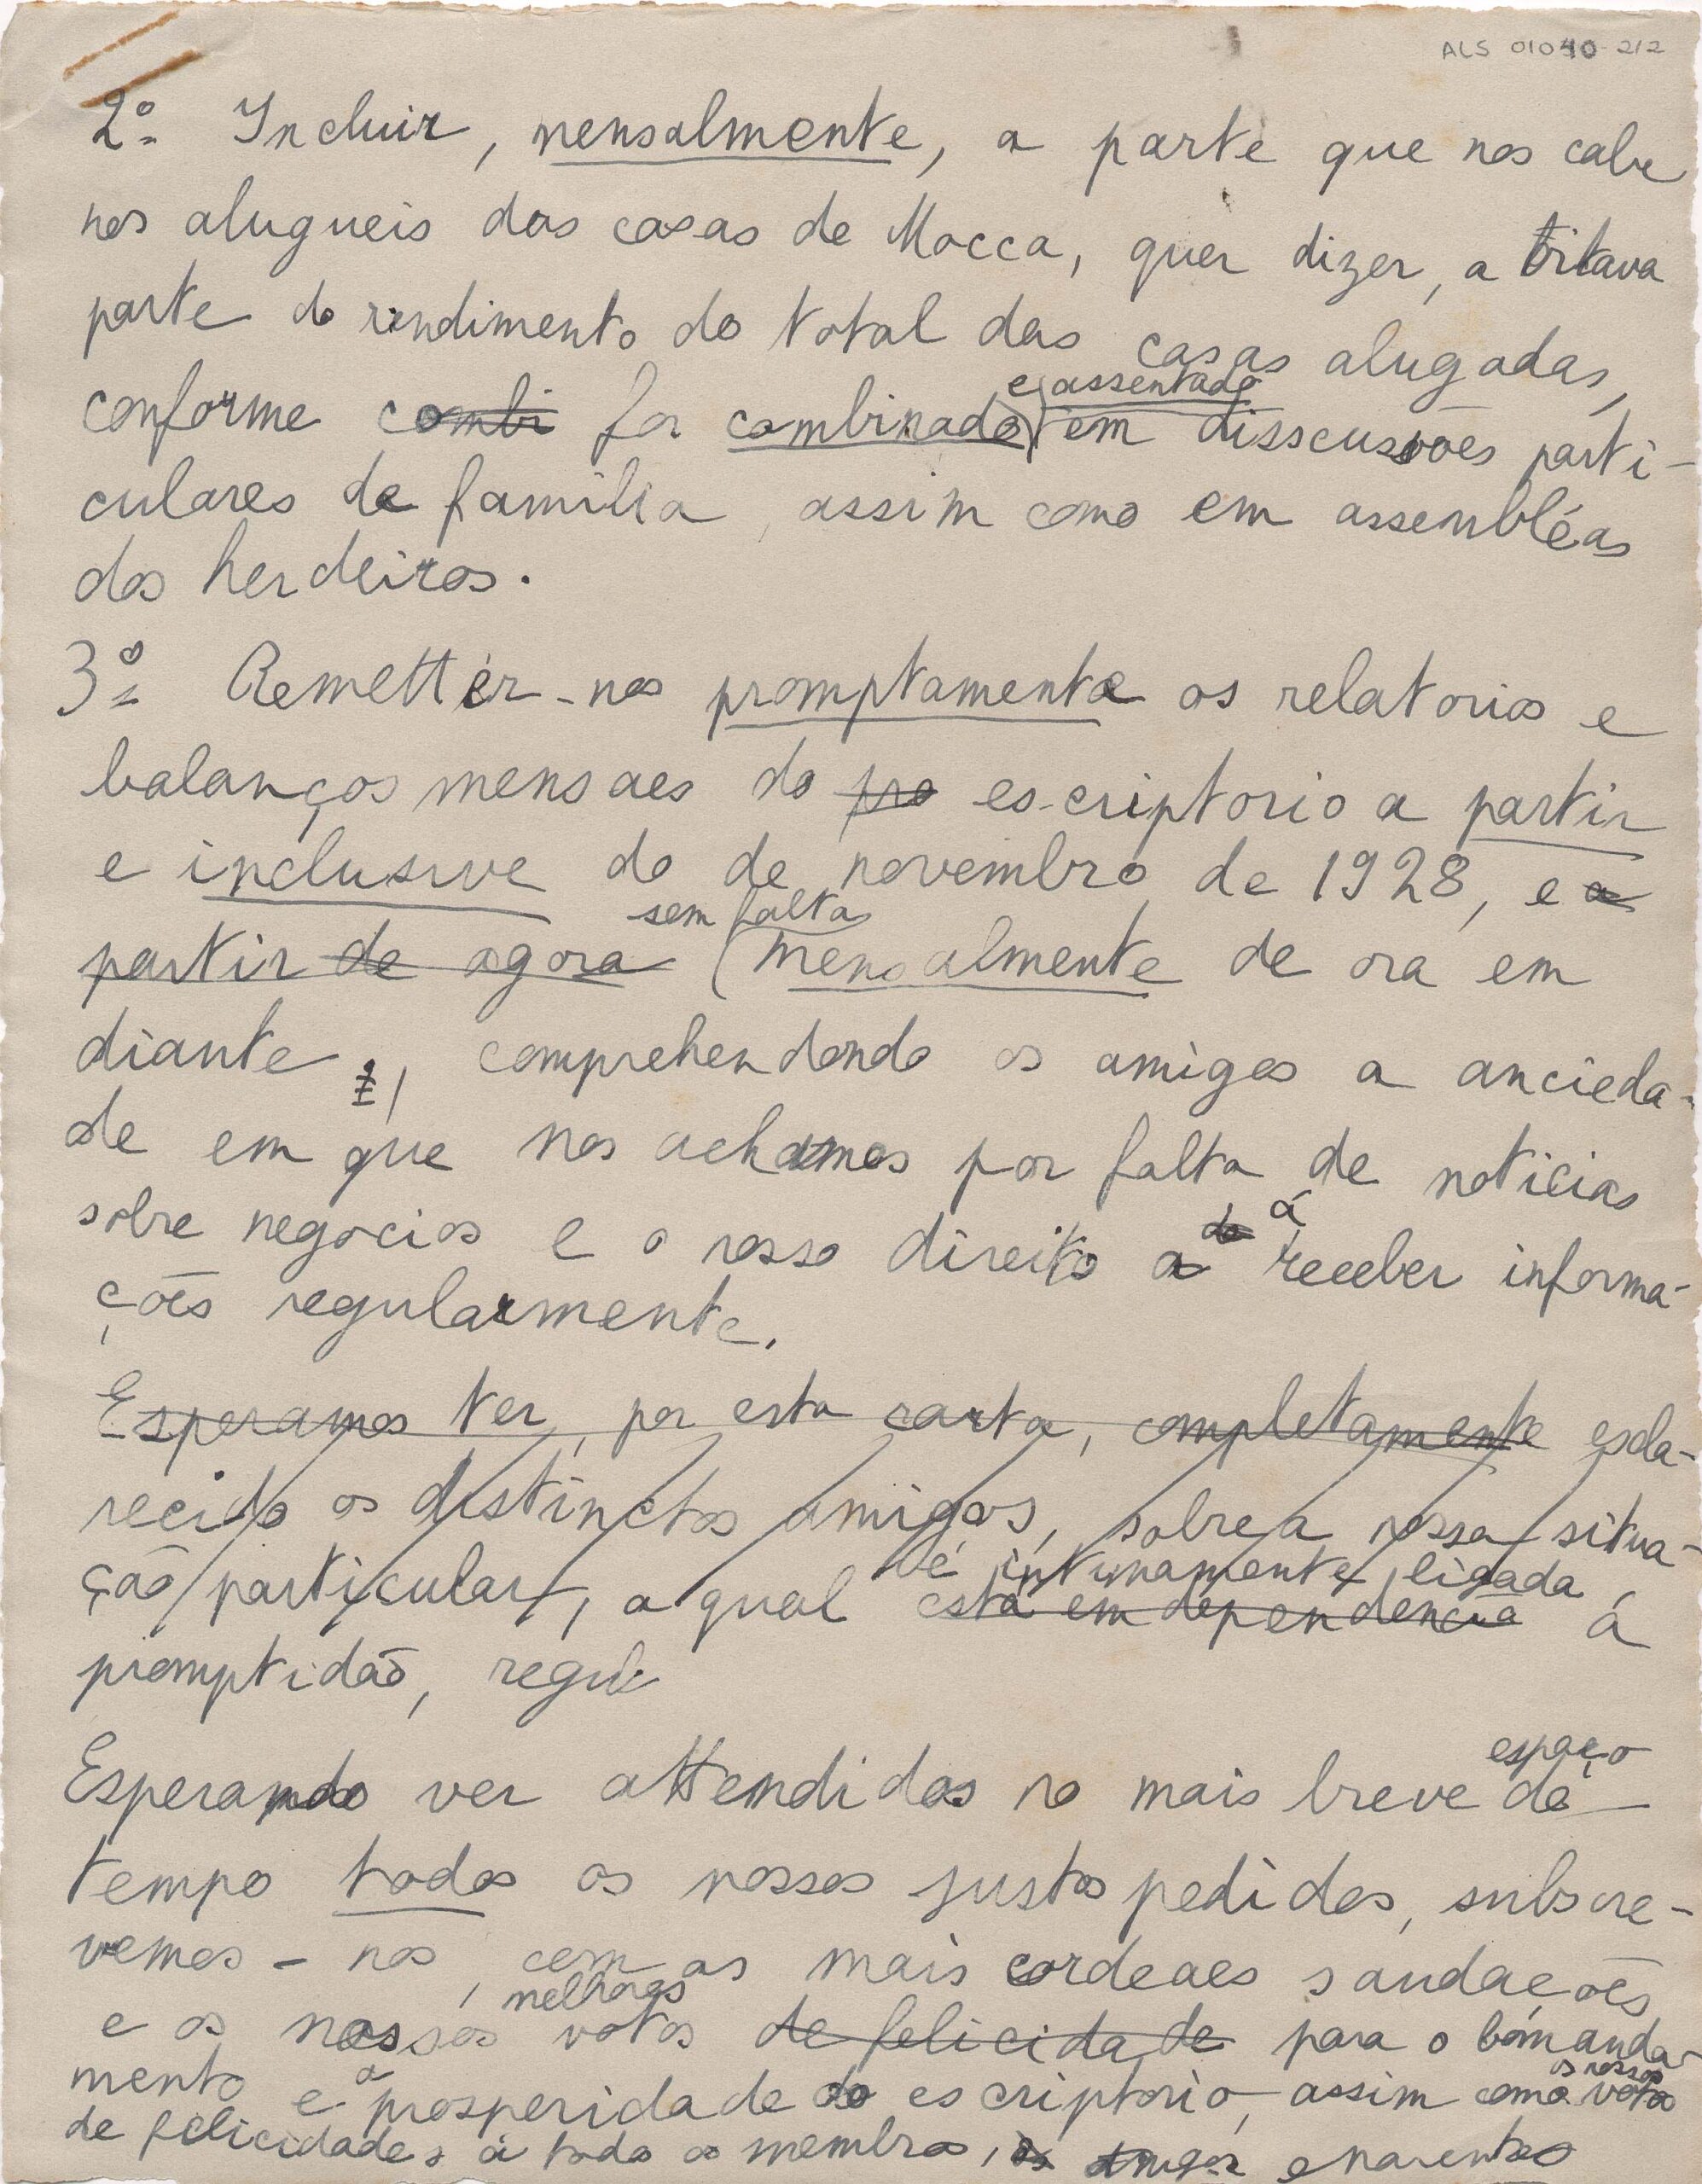 ALS 01040-2/2
2º Incluir, mensalmente, a parte que nos cabe
nos alugueis das casas de Mocca, quer dizer, a oitava
parte do rendimento do total das casas alugadas,
e assentado
conforme combi for combinado em disscussões parti-
culares de familia, assim como em assembléas
dos herdeiros.
3º Remetter-nos promptamente os relatorios e
balanços mensaes do pro escriptorio a partir
e inclusive do de novembro de 1928, e a
sem falta
partir de agora mensalmente de ora em
diante, comprehendendo os amigos a ancieda-
de em que nos achamos por falta de noticias
do á
sobre negocios e o nosso direito a receber informa-
ções regularmente.
Esperamos ter, por esta carta, completamente escla-
recido os distinctos amigos, sobre a nossa situa-
é intimamente ligada
ção particular, a qual está em dependencia á
promptidão, regul
espaço
Esperando ver attendidos no mais breve de
tempo todos os nossos justos pedidos, subscre-
vemos-nos, com as mais cordeaes saudações
melhores
e os nossos votos de felicidade para o bom anda-
os nossos
mento e a prosperidade do escriptorio, assim como votos
de felicidades á todo os membros, os amigos e parentes